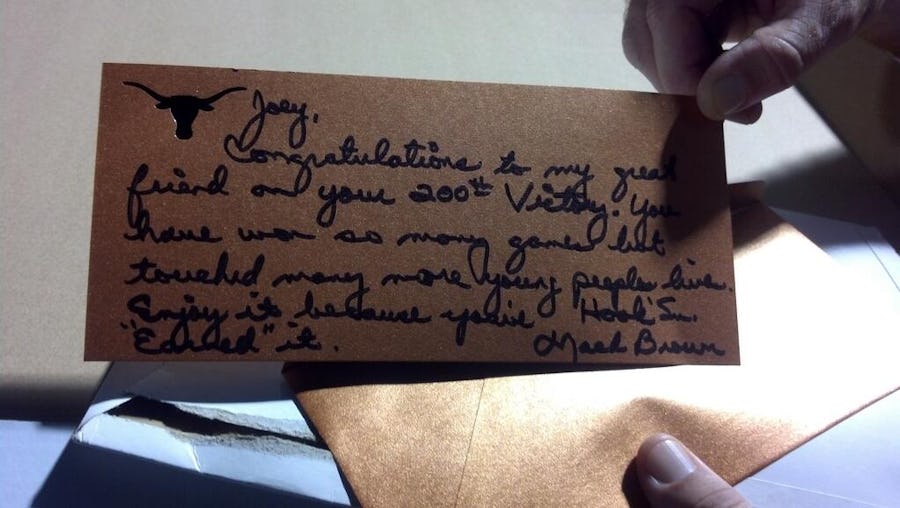 Joey,
Congratulations to my great
friend on your 200th Victory. You
have won so many games but
touched many more young peoples live.
Enjoy it because you've Hook 'Em.
"Earned" it. Mack Brown